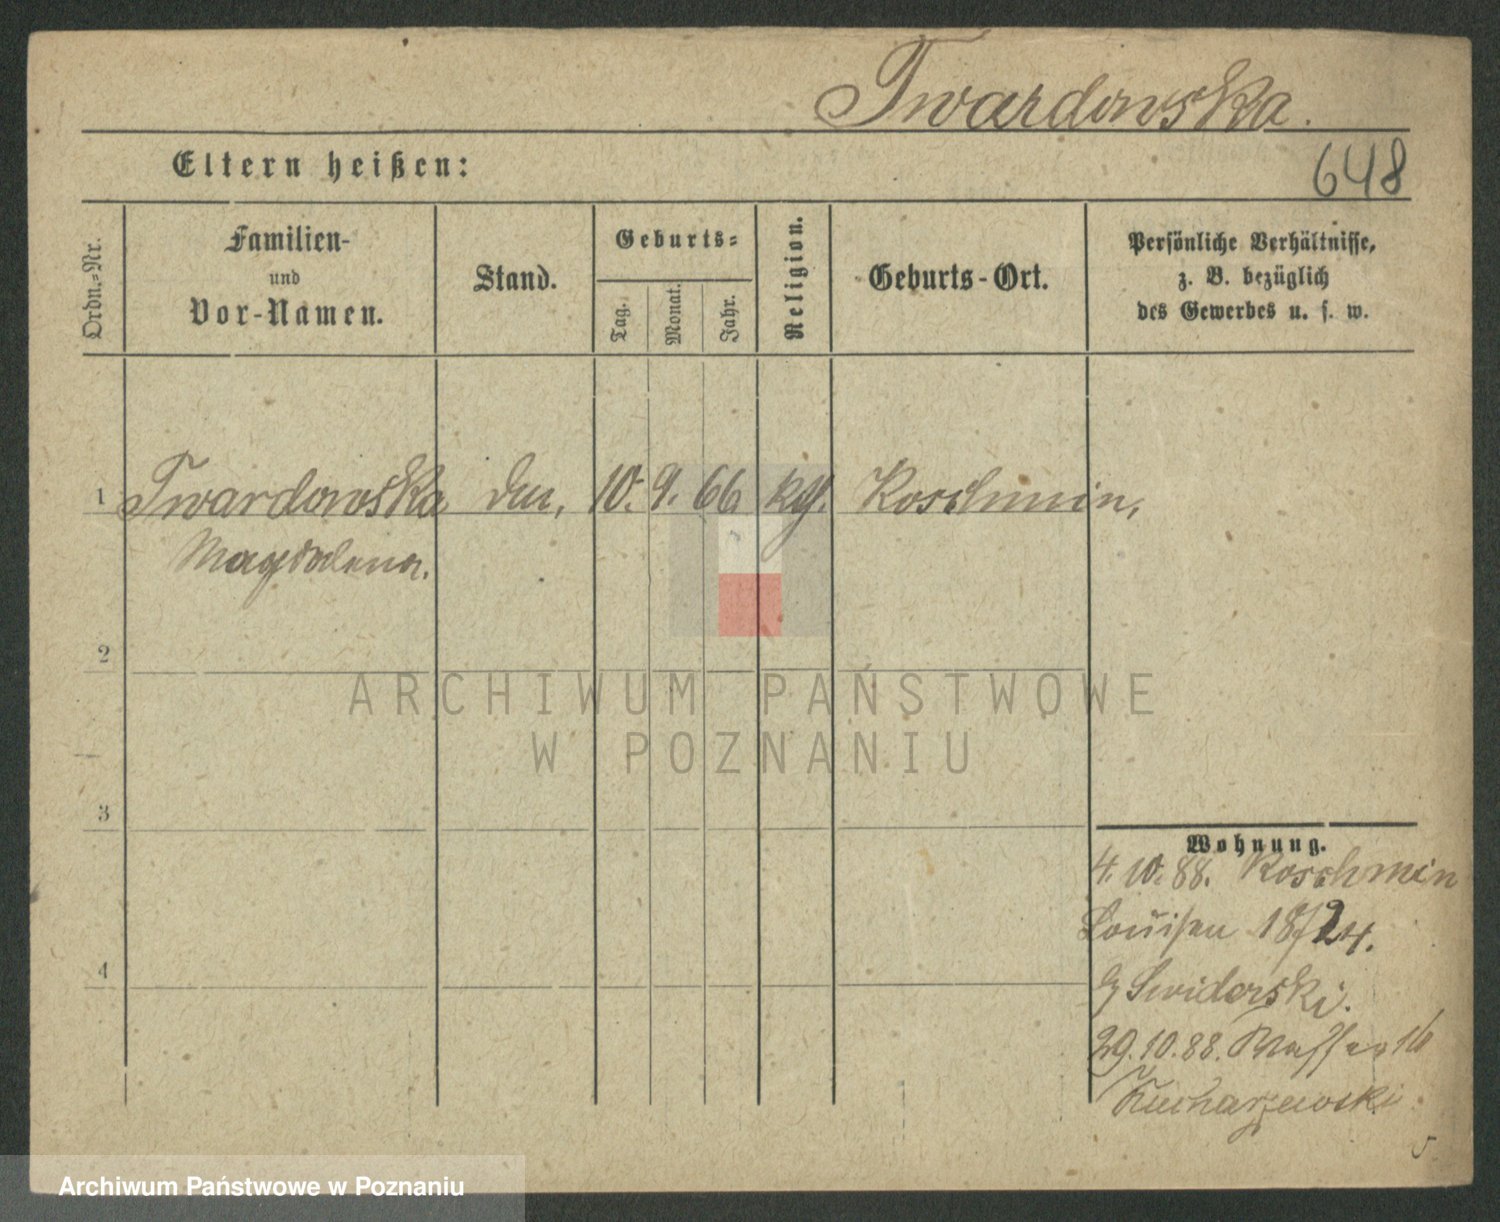 Twardowska.
Eltern heißen:
648
Ordn.-Nr.
Familien-
und
Vor-Namen.
Stand.
Geburts-
Tag.
Monat.
Jahr.
Religion.
Geburts-Ort.
Persönliche Verhältnisse,
z. B. bezüglich
des Gewerbes u. s. w.
1 Twardowska 10. 9. 66 kth. Koschmin,
Magdalena.
2
ARCHIWUM PAŃSTWOWE
W POZNANIU
3
Wohnung.
4. 10. 88. Koschmin
Louisen 18/24.
4
b Swiderski.
29. 10. 88. Wasser 16
Kucharzewski
5
Archiwum Państwowe w Poznaniu